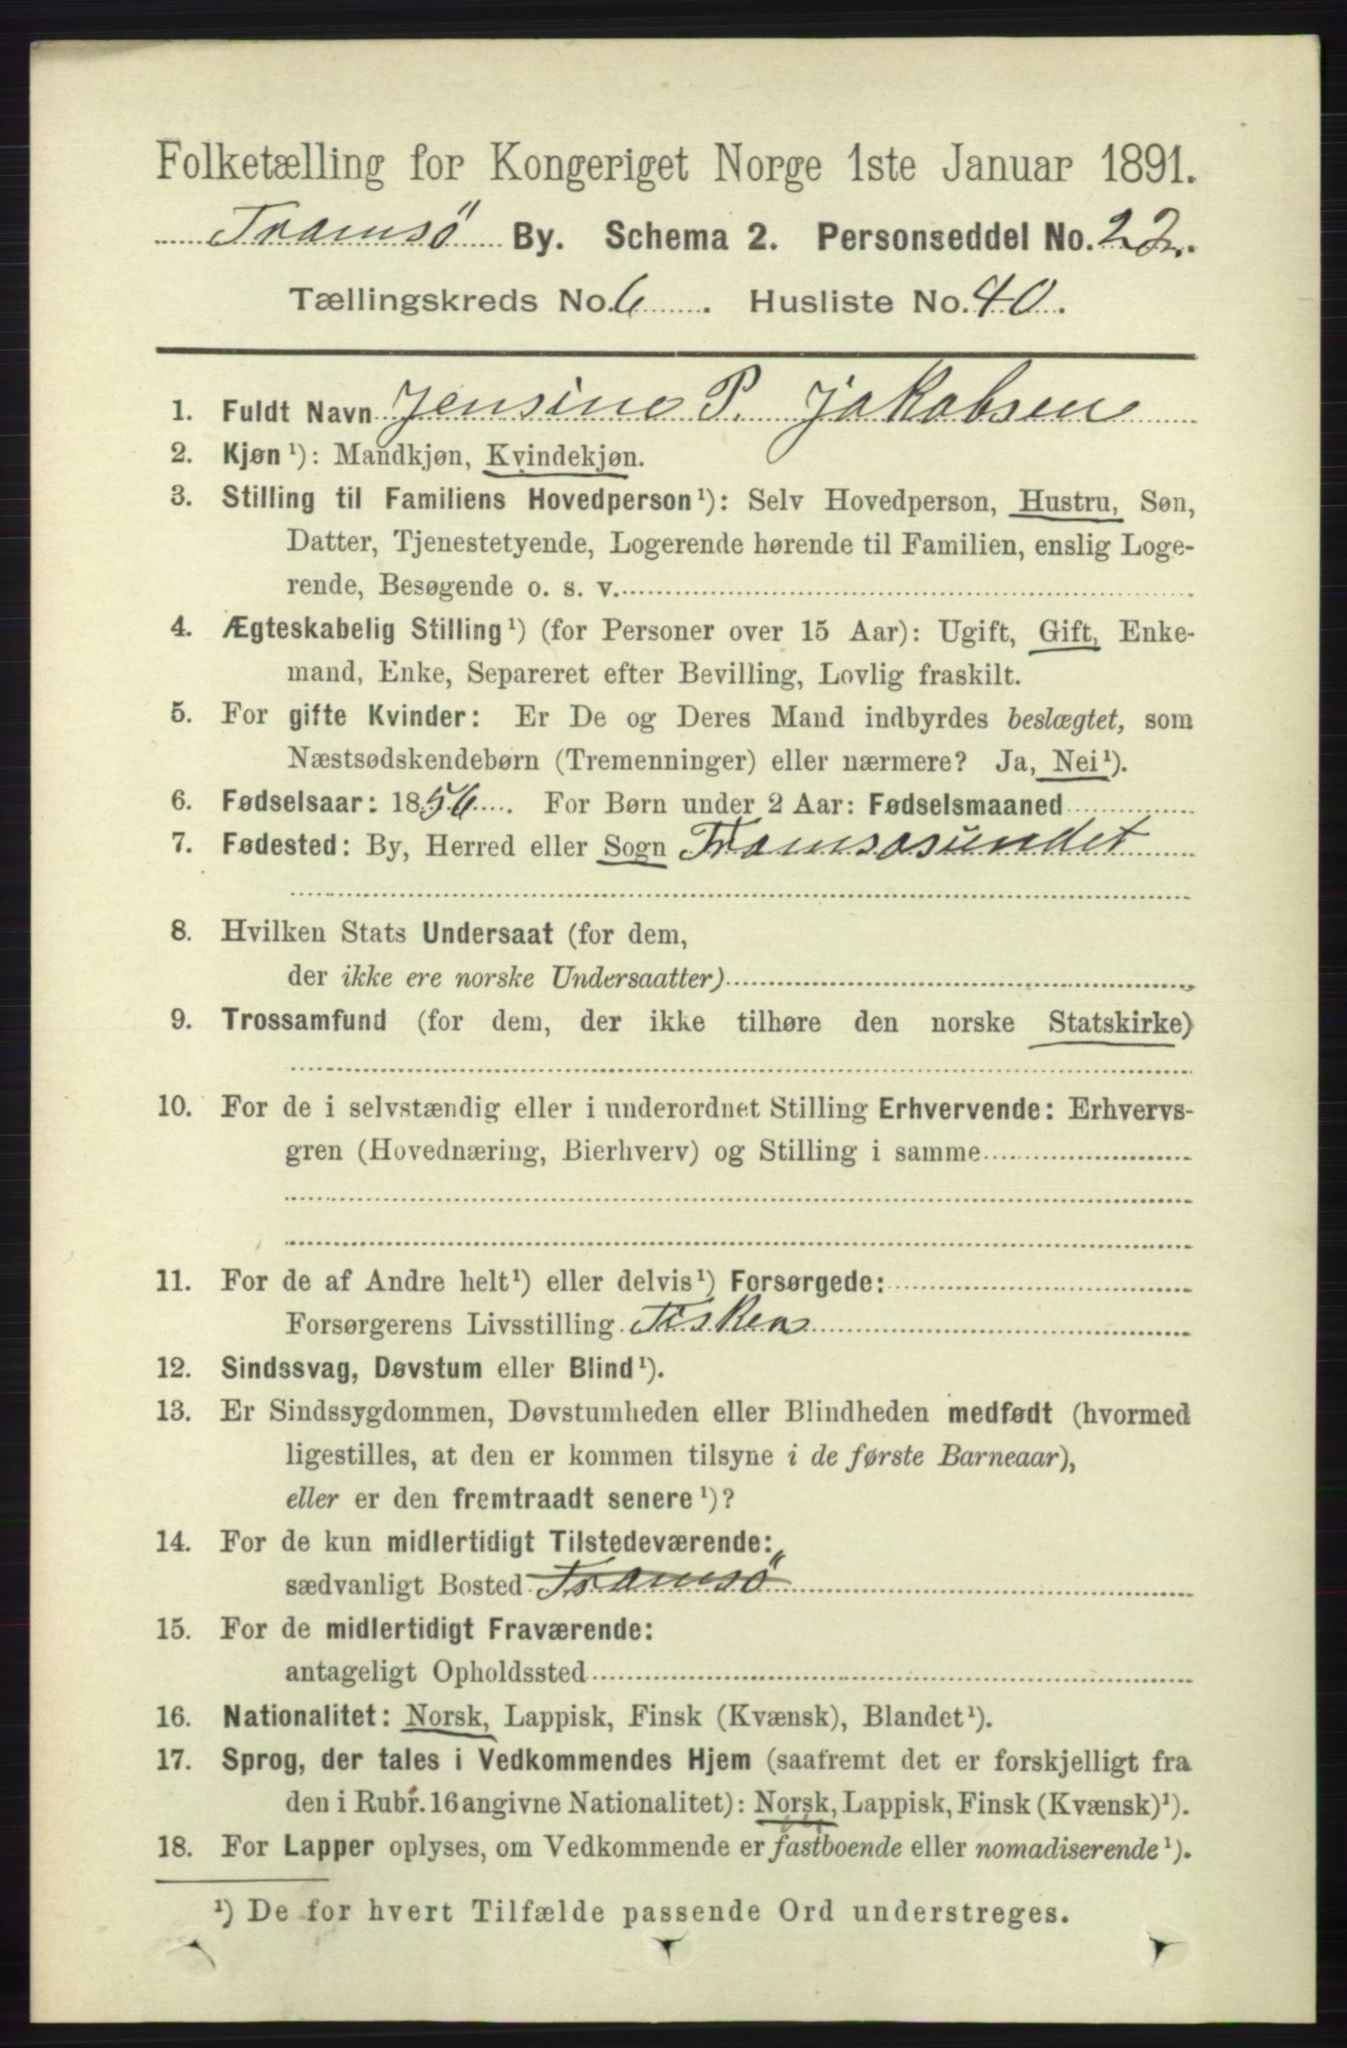 Folketælling for Kongeriget Norge 1ste Januar 1891.
Tromsö By. Schema 2. Personseddel No. 22.
Tællingskreds No. 6. Husliste No. 40.
1. Fuldt Navn Jensine P. Jakobsen
2. Kjøn ¹): Mandkjøn, Kvindekjøn.
3. Stilling til Familiens Hovedperson ¹): Selv Hovedperson, Hustru, Søn,
Datter, Tjenestetyende, Logerende hørende til Familien, enslig Loge-
rende, Besøgende o. s. v.
4. Ægteskabelig Stilling ¹) (for Personer over 15 Aar): Ugift, Gift, Enke-
mand, Enke, Separeret efter Bevilling, Lovlig fraskilt.
5. For gifte Kvinder: Er De og Deres Mand indbyrdes beslægtet, som
Næstsødskendebørn (Tremenninger) eller nærmere? Ja, Nei ¹).
6. Fødselsaar: 1856. For Børn under 2 Aar: Fødselsmaaned
7. Fødested: By, Herred eller Sogn Tromsøsundet
8. Hvilken Stats Undersaat (for dem,
der ikke ere norske Undersaatter)
9. Trossamfund (for dem, der ikke tilhøre den norske Statskirke)
10. For de i selvstændig eller i underordnet Stilling Erhvervende: Erhvervs-
gren (Hovednæring, Bierhverv) og Stilling i samme
11. For de af Andre helt ¹) eller delvis ¹) Forsørgede:
Forsørgerens Livsstilling Fisker
12. Sindssvag, Døvstum eller Blind ¹).
13. Er Sindssygdommen, Døvstumheden eller Blindheden medfødt (hvormed
ligestilles, at den er kommen tilsyne i de første Barneaar),
eller er den fremtraadt senere ¹)?
14. For de kun midlertidigt Tilstedeværende:
sædvanligt Bosted Tromsö
15. For de midlertidigt Fraværende:
antageligt Opholdssted
16. Nationalitet: Norsk, Lappisk, Finsk (Kvænsk), Blandet ¹).
17. Sprog, der tales i Vedkommendes Hjem (saafremt det er forskjelligt fra
den i Rubr. 16 angivne Nationalitet): Norsk, Lappisk, Finsk (Kvænsk) ¹).
18. For Lapper oplyses, om Vedkommende er fastboende eller nomadiserende ¹).
¹) De for hvert Tilfælde passende Ord understreges.